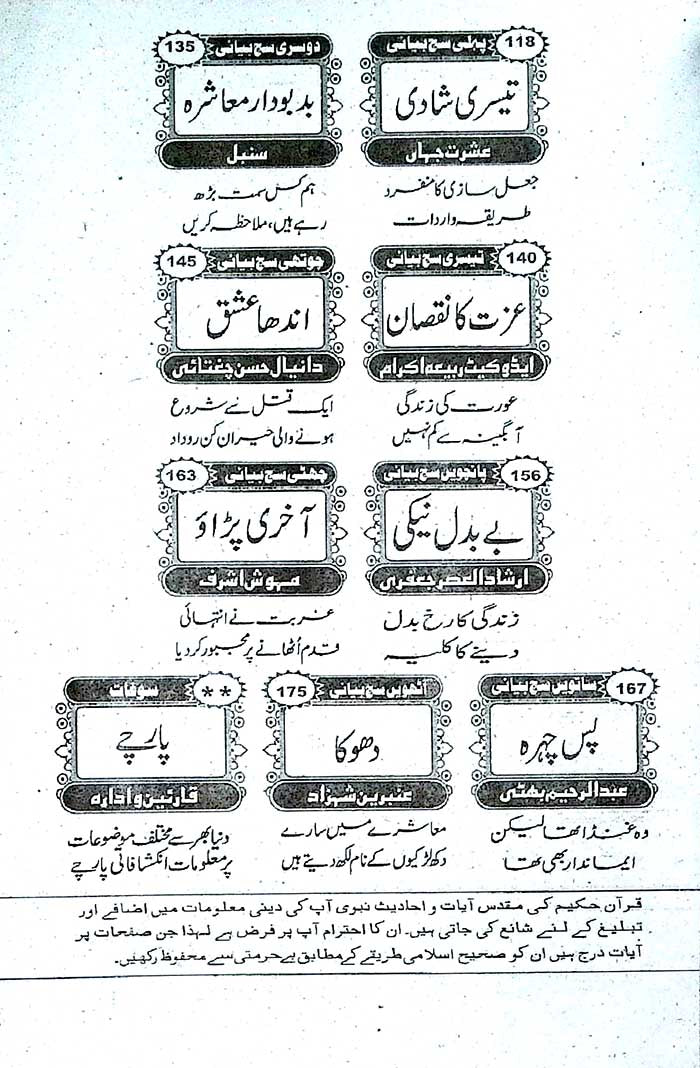 118 پہلی سچ بیانی
تیسری شادی
عشرت جہاں
جعل سازی کا منفرد
طریقہ واردات
135 دوسری سچ بیانی
بدبودار معاشرہ
سنبل
ہم کس سمت بڑھ
رہے ہیں، ملاحظہ کریں
140 تیسری سچ بیانی
عزت کا نقصان
ایڈوکیٹ ربیعہ اکرام
عورت کی زندگی
آبگینہ سے کم نہیں
145 چوتھی سچ بیانی
اندھا عشق
دانیال حسن چغتائی
ایک قتل سے شروع
ہونے والی حیران کن روداد
156 پانچویں سچ بیانی
بے بدل نیکی
ارشاد العصر جعفری
زندگی کا رخ بدل
دینے کا کلیہ
163 چھٹی سچ بیانی
آخری پڑاؤ
مہوش اشرف
غربت نے انتہائی
قدم اُٹھانے پر مجبور کر دیا
167 ساتویں سچ بیانی
پس چہرہ
عبدالرحیم بھٹی
وہ غنڈا تھا لیکن
ایماندار بھی تھا
175 آٹھویں سچ بیانی
دھوکا
عنبرین شہزاد
معاشرے میں سارے
دکھ لڑکیوں کے نام لکھ دیتے ہیں
** سوغات
پارچے
قارئین و ادارہ
دنیا بھر سے مختلف موضوعات
پر معلومات انکشافاتی پارچے
قرآن حکیم کی مقدس آیات و احادیث نبوی آپ کی دینی معلومات میں اضافے اور
تبلیغ کے لئے شائع کی جاتی ہیں۔ ان کا احترام آپ پر فرض ہے لہذا جن صفحات پر
آیات درج ہیں ان کو صحیح اسلامی طریقے کے مطابق بے حرمتی سے محفوظ رکھیں۔